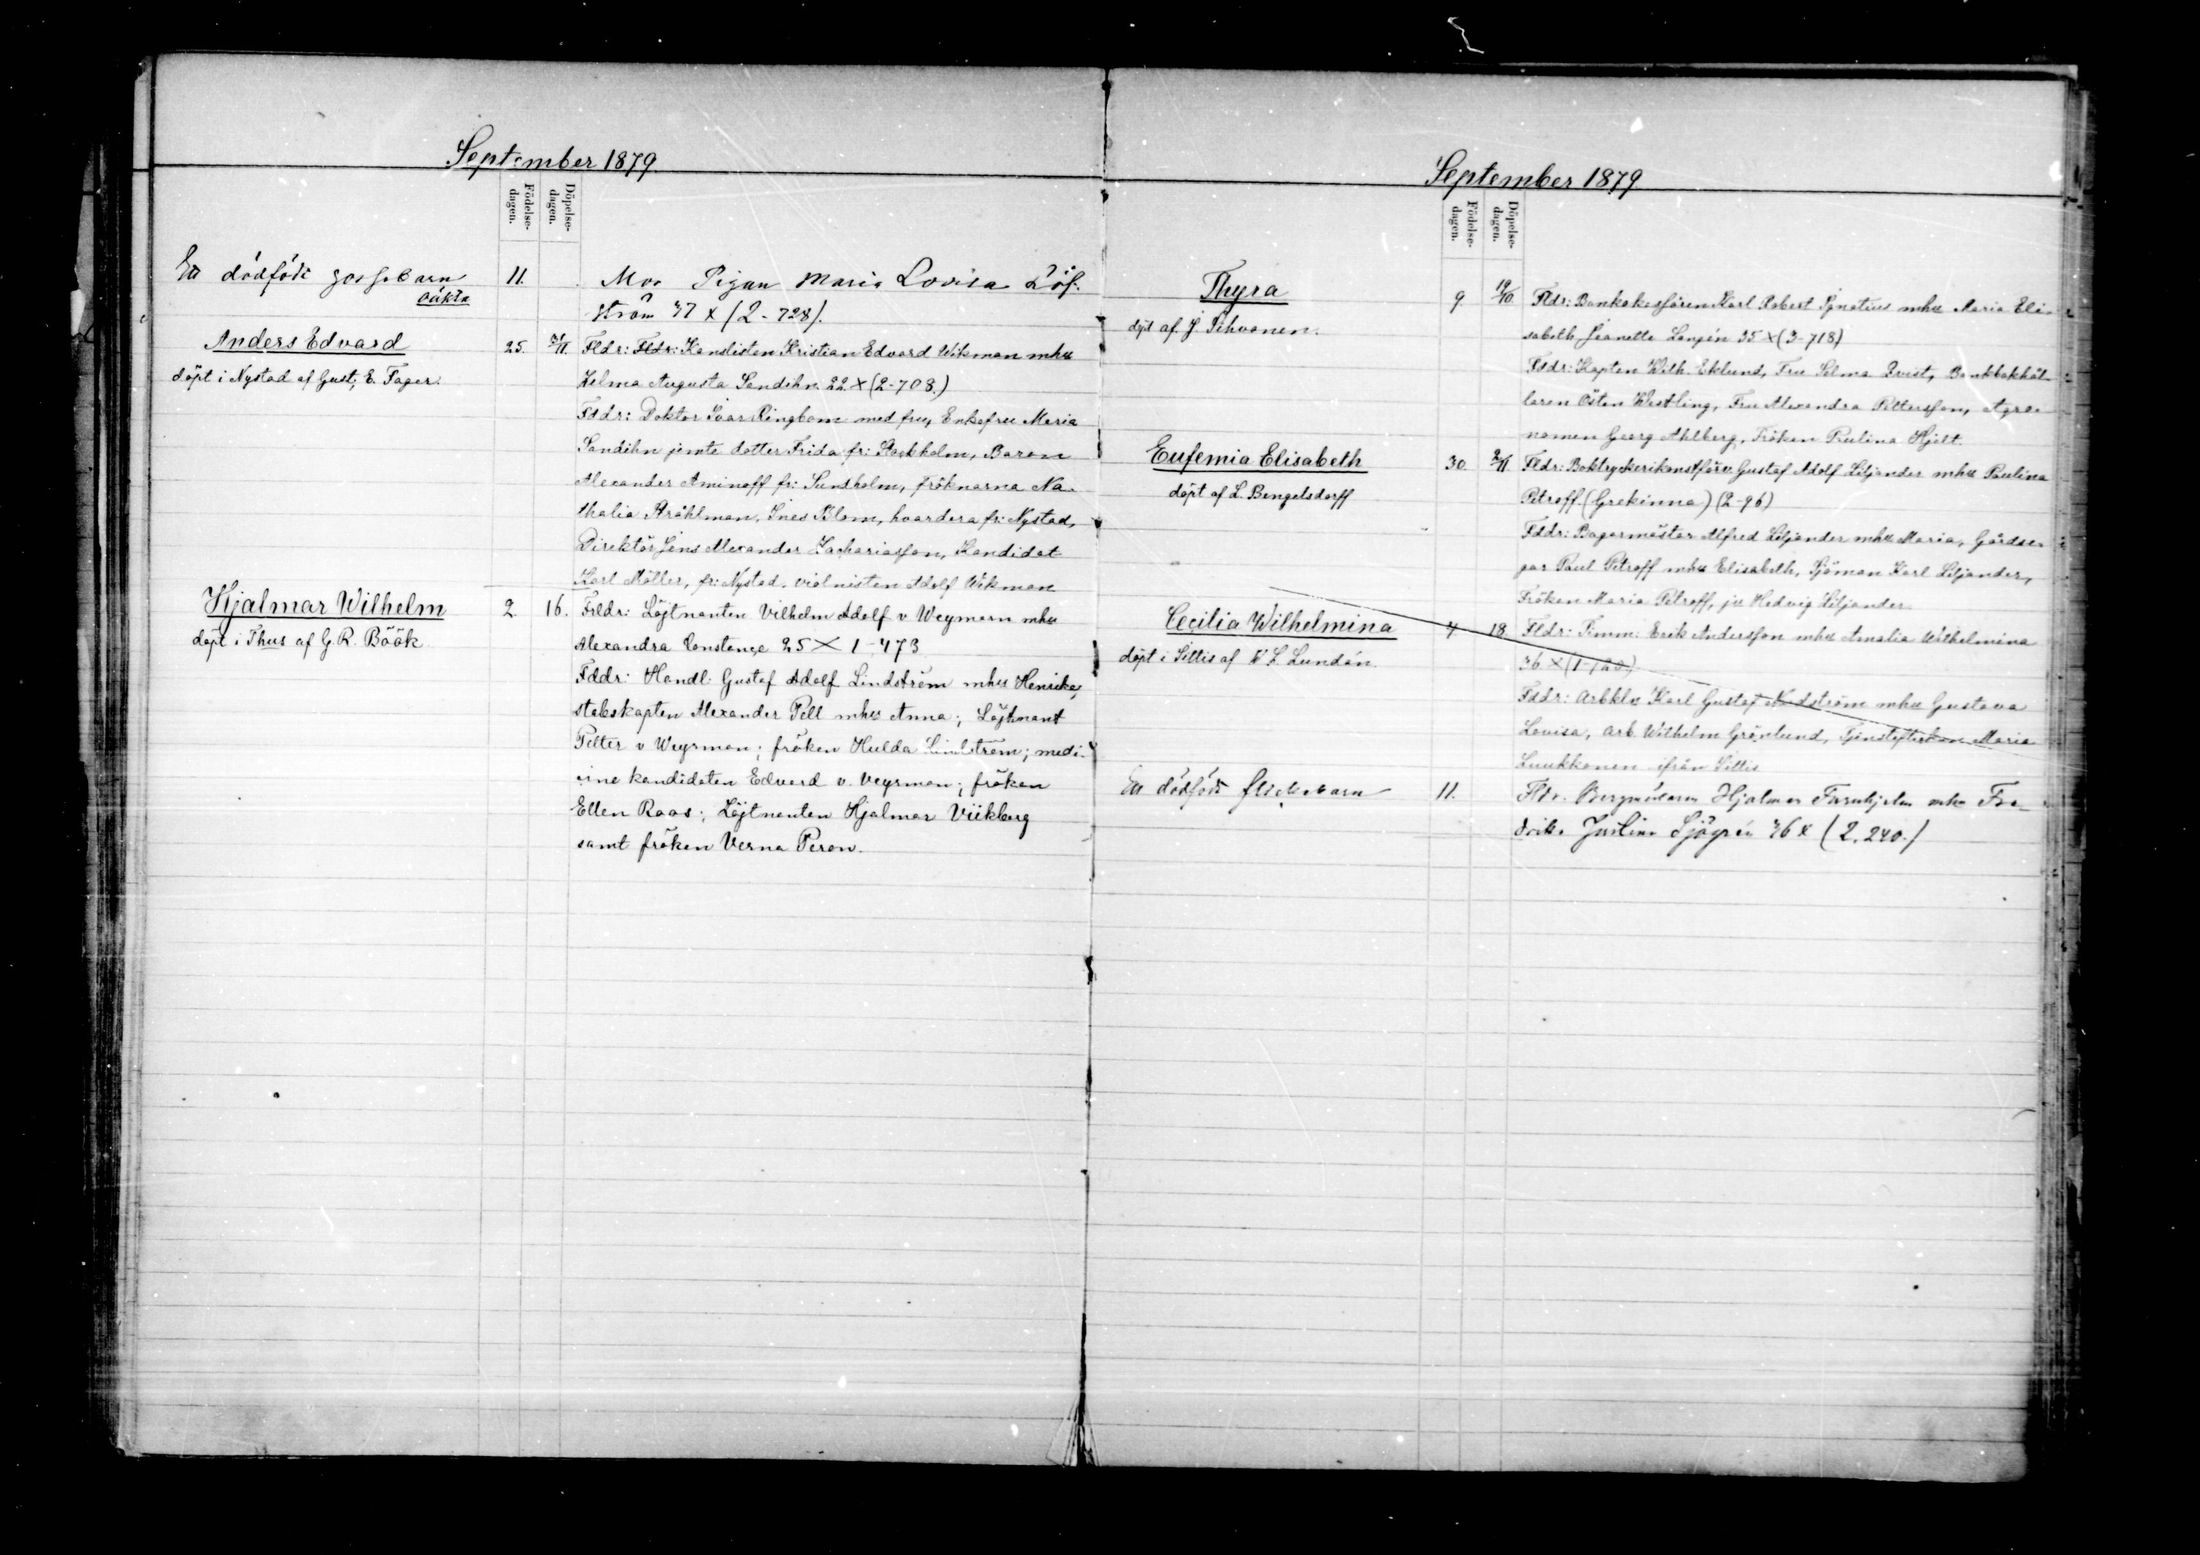 September 1879
Födelse-dagen.
Döpelse-dagen.
Ett dödfödt gossebarn
oäkta
11.
Mor Pigan Maria Lovisa Löf-
ström 37 x (2-728).
Anders Edvard
döpt i Nystad af Gust. E. Fager.
25.
Fldr: Fldr: Kanslisten Kristian Edvard Wikman mhu
Hilma Augusta Sandihn 22 x (2-708.)
Fddr: Doktor Ivar Ringbom med fru, Enkefru Maria
Sandihn jemte dotter Frida fr: Stockholm, Baron
Alexander Aminoff fr: Sundholm, fröknarna Na-
thalia Stråhlman, Ines Blom, hvardera fr: Nystad,
Direktör Jens Alexander Zachariasson, Kandidat
Karl Möller, fr: Nystad. violinisten Adolf Wikman
Hjalmar Wilhelm
döpt i Thus af G. R. Böök.
2.
16.
Frldr: Löjtnanten Vilhelm Adolf v Weymarn mhu
Alexandra Constance 25 X 1-473
Fddr: Handl: Gustaf Adolf Lindström mhu Henrika,
stabskapten Alexander Pell mhu Anna; Löjtnant
Petter v Weyrman; fröken Hulda Lindström; medi-
cine kandidaten Edvard v. Veyrman; fröken
Ellen Raas; Löjtnanten Hjalmar Viikberg
samt fröken Verna Peron.
September 1879
Födelse-dagen.
Döpelse-dagen.
Thyra
döpt af J. Pihvonen.
9
19/10
Fldr: Bankokassören Karl Robert Ignatius mhu Maria Eli-
sabeth Jeanette Langén 35 x (3-718)
Fddr: Kapten Wilh. Eklund, Fru Selma Qvist, Bankbokhål-
laren Östen Westling, Fru Alexandra Pettersson, Agro-
nomen Georg Ahlberg, Fröken Paulina Hjelt.
Eufemia Elisabeth
döpt af L. Bengelsdorff
30
2/11
Fldr: Boktryckerikonstförv. Gustaf Adolf Liljander mhu Paulina
Petroff (Grekinna) (2-96)
Fddr: Bagarmästar Alfred Liljander mhu Maria, Gårdse-
gar Paul Petroff mhu Elisabeth, Sjöman Karl Liljander,
Fröken Maria Petroff, ju Hedvig Liljander.
Cecilia Wilhelmina
döpt i Sittis af K L Lundán.
4
18
Fldr: Timm: Erik Andersson mhu Amalia Wilhelmina
36 x
Fddr: Arbkl: Karl Gustaf Nordström mhu Gustava
Lovisa, Arb. Wilhelm Grönlund, Maria
Luukkonen ifrån Sittis
Ett dödfödt flickebarn
11.
Fldr. Hjalmar Furuhjelm mhu Fre-
drika Justina Sjögrén 36 x (2.240.)